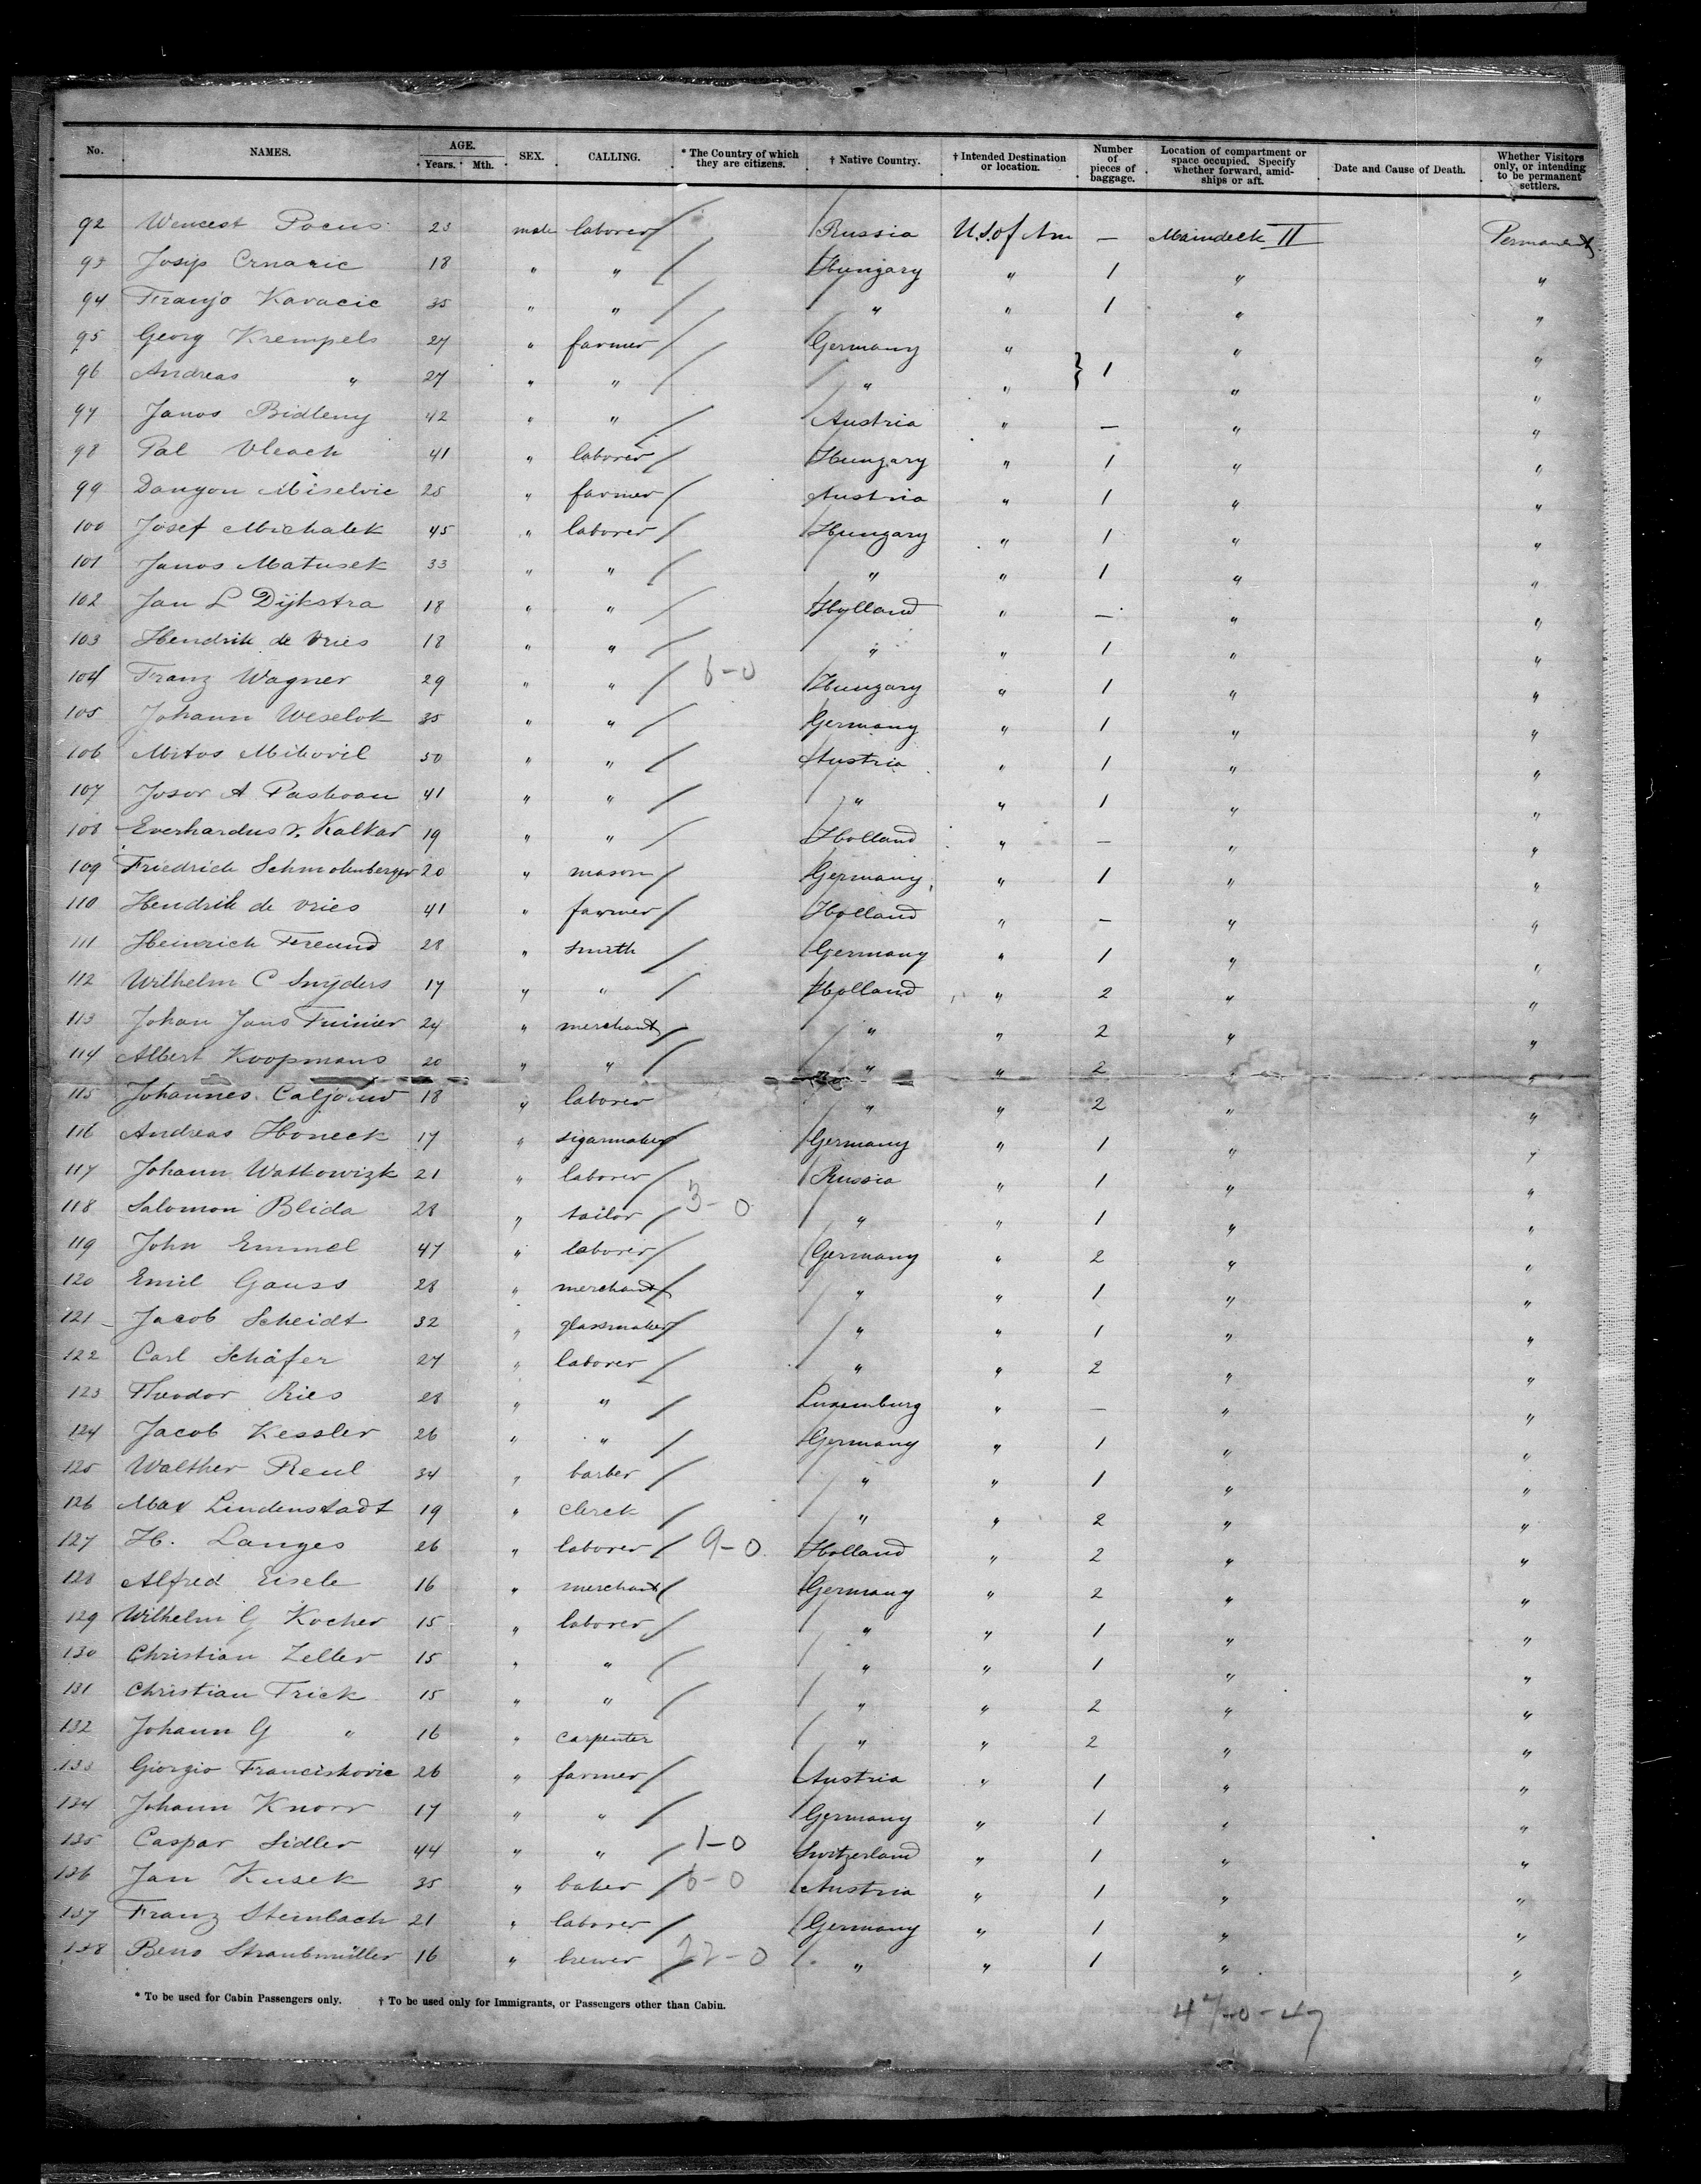 No. NAMES. AGE. Years. Mth. SEX. CALLING. * The Country of which they are citizens. † Native Country. † Intended Destination or location. Number of pieces of baggage. Location of compartment or space occupied. Specify whether forward, amidships or aft. Date and Cause of Death. Whether Visitors only, or intending to be permanent settlers.
92 Wencest Pocus 23 male laborer Russia U.S. of Am — Maindeck II Permanent
93 Josip Crnaric 18 " " Hungary " 1 " "
94 Franjo Kavacic 35 " " " " 1 " "
95 Georg Krempels 27 " farmer Germany " " "
96 Andreas " 27 " " " " } 1 " "
97 Janos Bidleny 42 " " Austria " — " "
98 Pal Vleach 41 " laborer Hungary " 1 " "
99 Danyon Miselvic 25 " farmer Austria " 1 " "
100 Josef Michalek 45 " laborer Hungary " 1 " "
101 Janos Matusek 33 " " " " 1 " "
102 Jan L Dijkstra 18 " " Holland " — " "
103 Hendrik de Vries 18 " " " " 1 " "
104 Franz Wagner 29 " " 6-0 Hungary " 1 " "
105 Johann Weselok 35 " " Germany " 1 " "
106 Mitos Mihovil 50 " " Austria " 1 " "
107 Josor A Pashoan 41 " " " " 1 " "
108 Everhardus v. Kalkar 19 " " Holland " — " "
109 Friedrich Schmolenberger 20 " mason Germany " 1 " "
110 Hendrik de Vries 41 " farmer Holland " — " "
111 Heinrich Freund 28 " smith Germany " 1 " "
112 Wilhelm C Snyders 17 " " Holland " 2 " "
113 Johan Jans Tuinier 24 " merchant " " 2 " "
114 Albert Koopmans 20 " " " " 2 " "
115 Johannes Caljouw 18 " laborer " " 2 " "
116 Andreas Honeck 17 " sigarmaker Germany " 1 " "
117 Johann Watkowizk 21 " laborer Russia " 1 " "
118 Salomon Blida 28 " tailor 3-0 " " 1 " "
119 John Emmel 47 " laborer Germany " 2 " "
120 Emil Gauss 28 " merchant " " 1 " "
121 Jacob Scheidt 32 " glassmaker " " 1 " "
122 Carl Schäfer 27 " laborer " " 2 " "
123 Theodor Ries 28 " " Luxemburg " — " "
124 Jacob Kessler 26 " " Germany " 1 " "
125 Walther Reul 34 " barber " " 1 " "
126 Max Lindenstadt 19 " clerck " " 2 " "
127 H. Langes 26 " laborer 9-0 Holland " 2 " "
128 Alfred Eisele 16 " merchant Germany " 2 " "
129 Wilhelm G Kocher 15 " laborer " " 1 " "
130 Christian Zeller 15 " " " " 1 " "
131 Christian Trick 15 " " " " 2 " "
132 Johann G " 16 " carpenter " " 2 " "
133 Giorgio Franciskovic 26 " farmer Austria " 1 " "
134 Johann Knorr 17 " " Germany " 1 " "
135 Caspar Sidler 44 " " 1-0 Switzerland " 1 " "
136 Jan Kusek 35 " baker 6-0 Austria " 1 " "
137 Franz Steinbach 21 " laborer Germany " 1 " "
138 Beno Straubmüller 16 " brewer 22-0 " " 1 " "
* To be used for Cabin Passengers only. † To be used only for Immigrants, or Passengers other than Cabin.
47-0-47